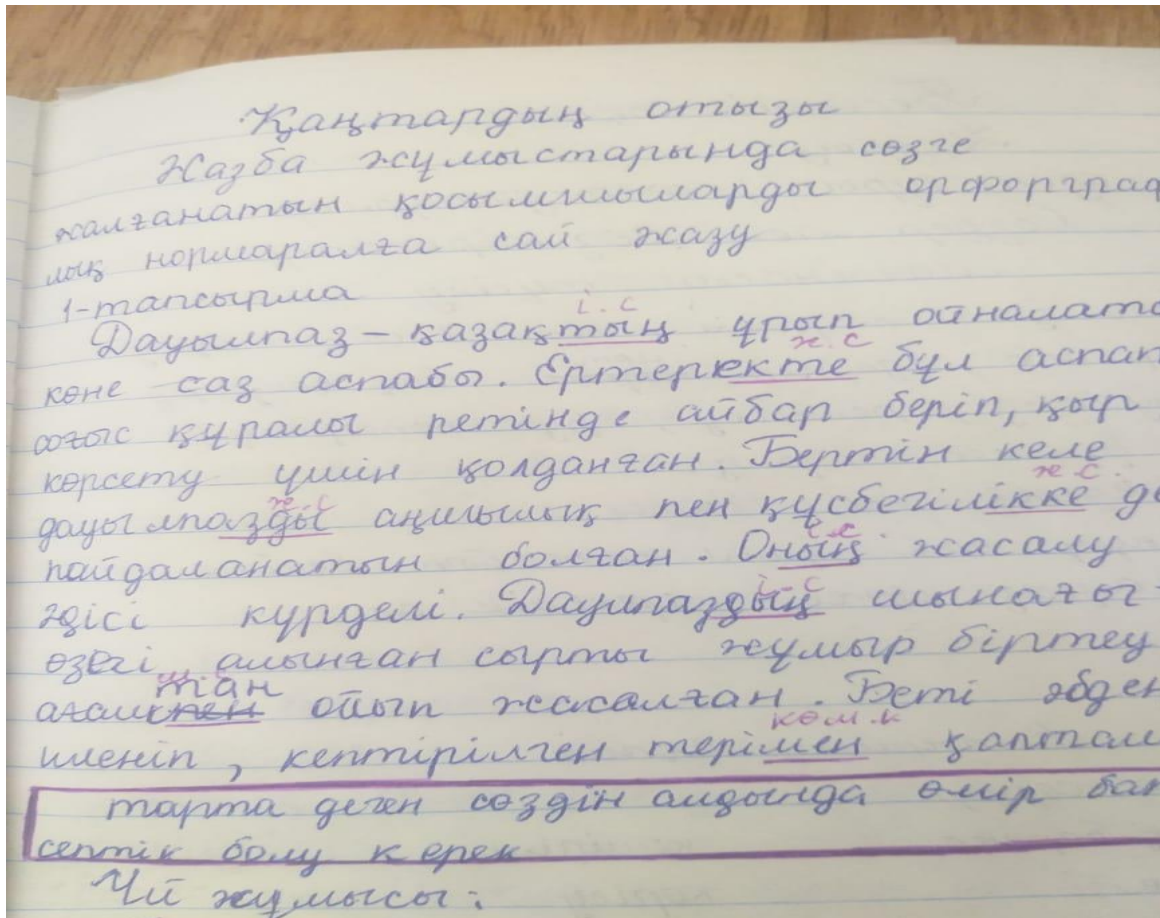 Қаңтардың отызы
Жазба жұмыстарында сөзге
жалғанатын қосымшыларды орфорграф
лық нормаралға сай жазу
1-тапсырма
і.с
Дауылпаз – қазақтың ұрып ойналато
ж.с
көне саз аспабы. Ертеректе бұл аспап
соғыс құралы ретінде айбар беріп, қыр
көрсету үшін қолданған. Бертін келе
ж.с ж.с
дауылпазды аңшылық пен құсбегілікке де
і.с
пайдаланатын болған. Оның жасалу
і.с
әдісі күрделі. Даулпаздың шынағы-
өзегі алынған сырты жұмыр біртеу
тан
ағашпен ойып жасалған. Беті әбден
көм.к
иленіп, кептірілген терімен қаптал
тарта деген сөздін алдында өмір бап
септік болу керек
Үй жұмысы: